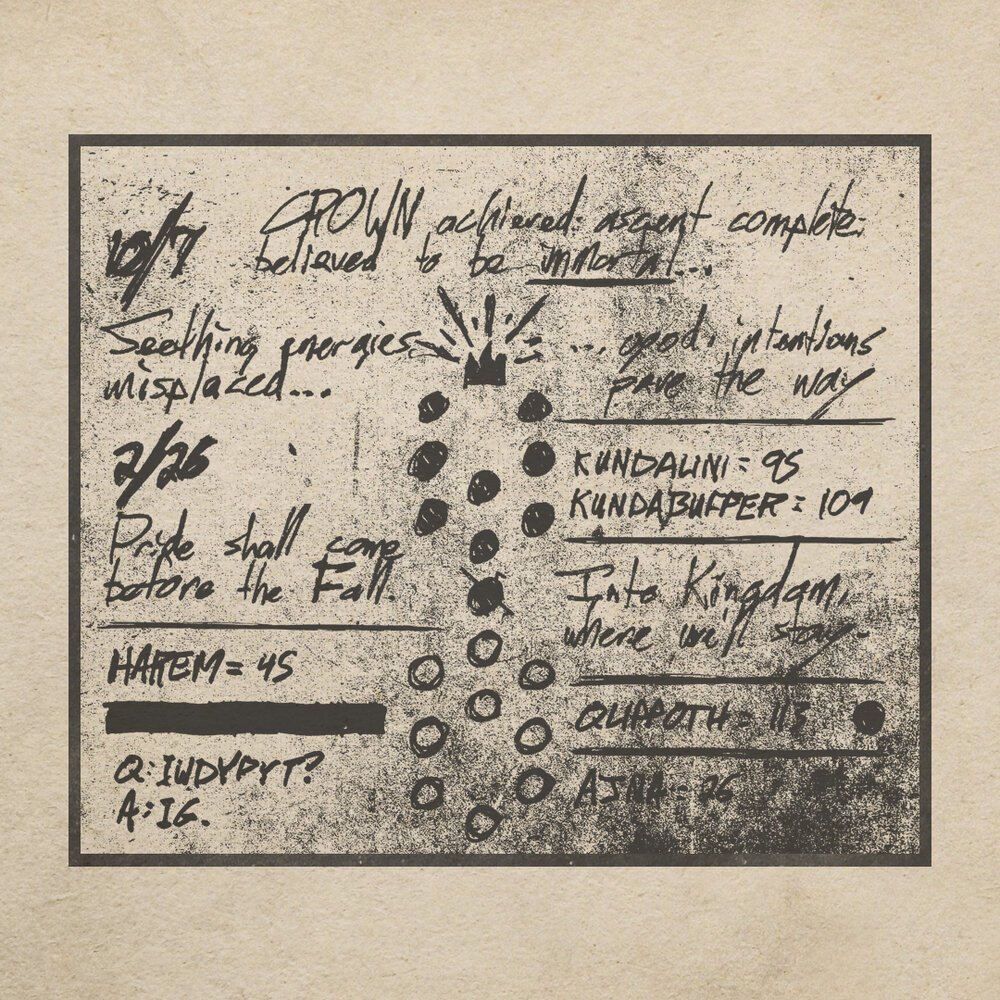 10/7
CROWN achieved: ascent complete.
believed to be immortal...
Seething energies
misplaced...
... good intentions
pave the way
2/26
Pride shall come
before the Fall.
KUNDALINI = 95
KUNDABUFFER = 109
Into Kingdom,
where we'll stay.
HAREM = 45
QLIPPOTH = 113
Q: IWDYPYT?
A: IG.
AJNA = 26